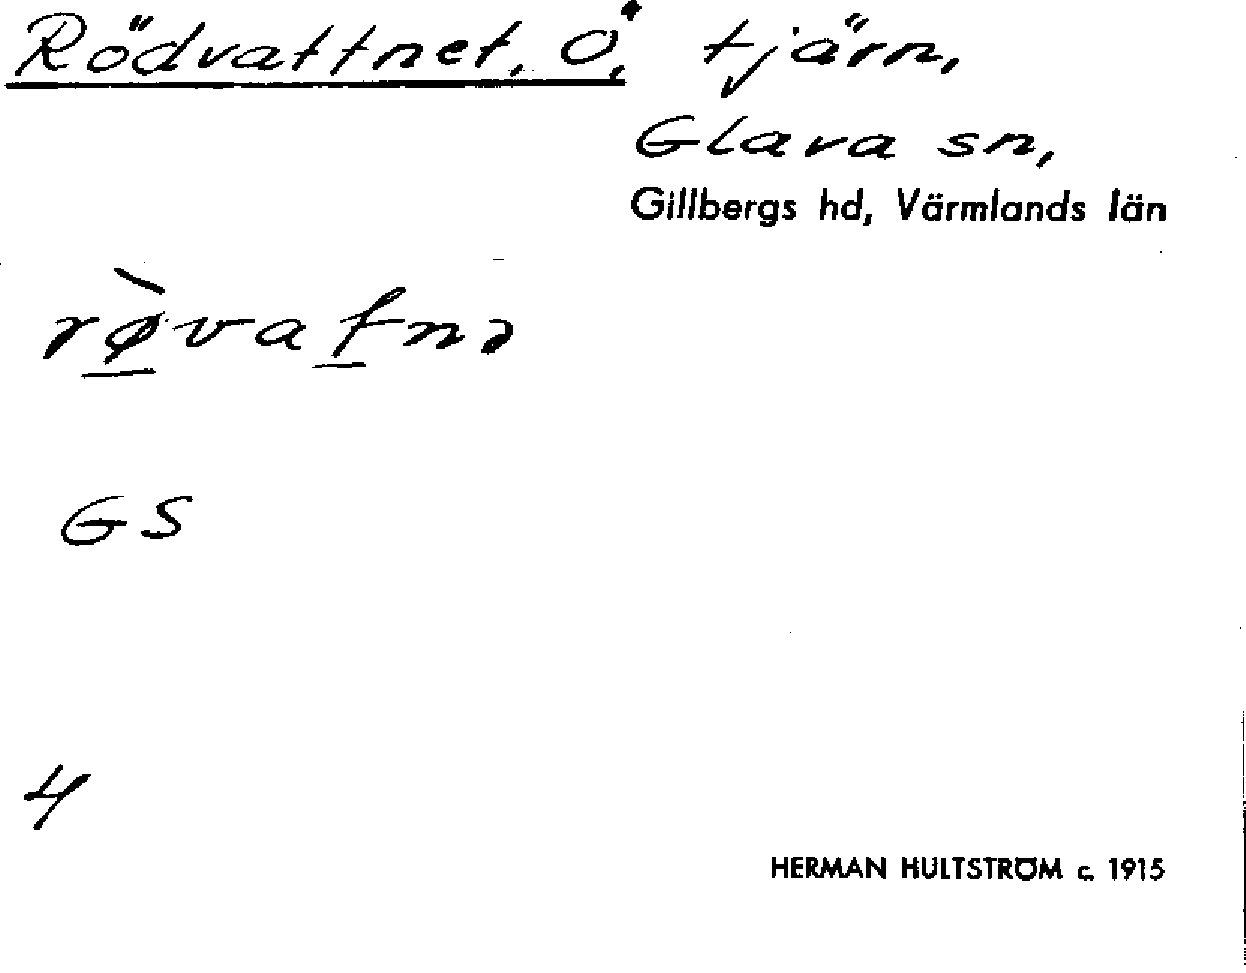 Rödvattnet, Ö, tjärn,
Glava sn,
Gillbergs hd, Värmlands län
rø̀vatnə
GS
4
HERMAN HULTSTRÖM c. 1915